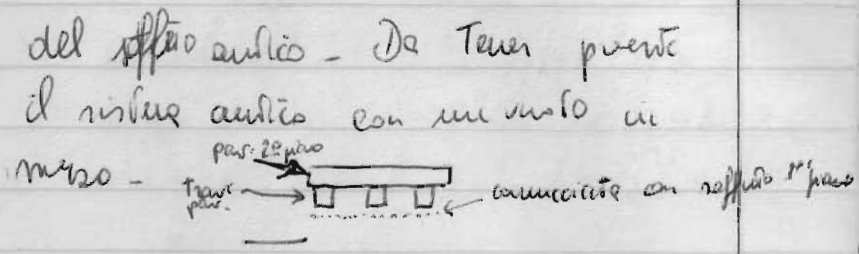 del soffitto antico - Da Tener presente
il sistema antico con un vuoto in
mezzo -
pav. 2º piano
trave pav.
cannicciata con soffitto 1º piano